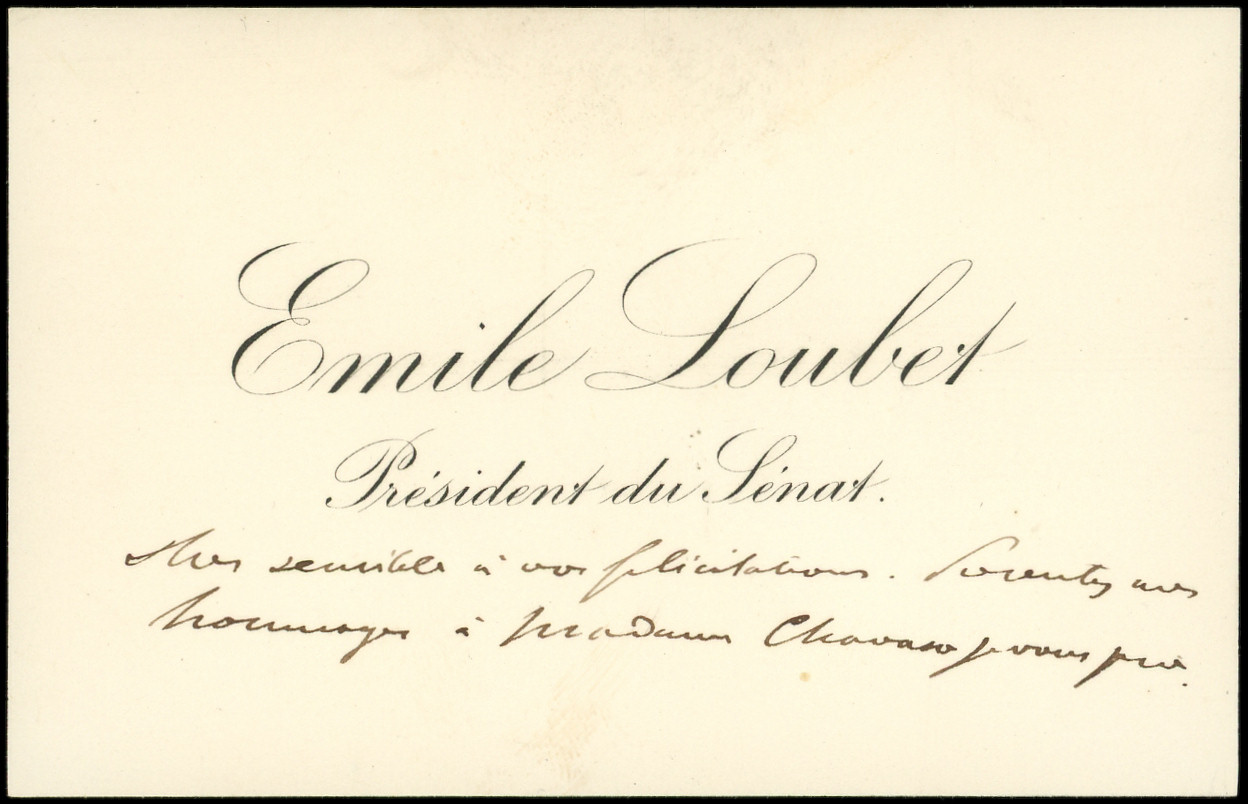 Emile Loubet
Président du Sénat.
très sensible à vos félicitations. Présentez mes
hommages à Madame je vous prie.